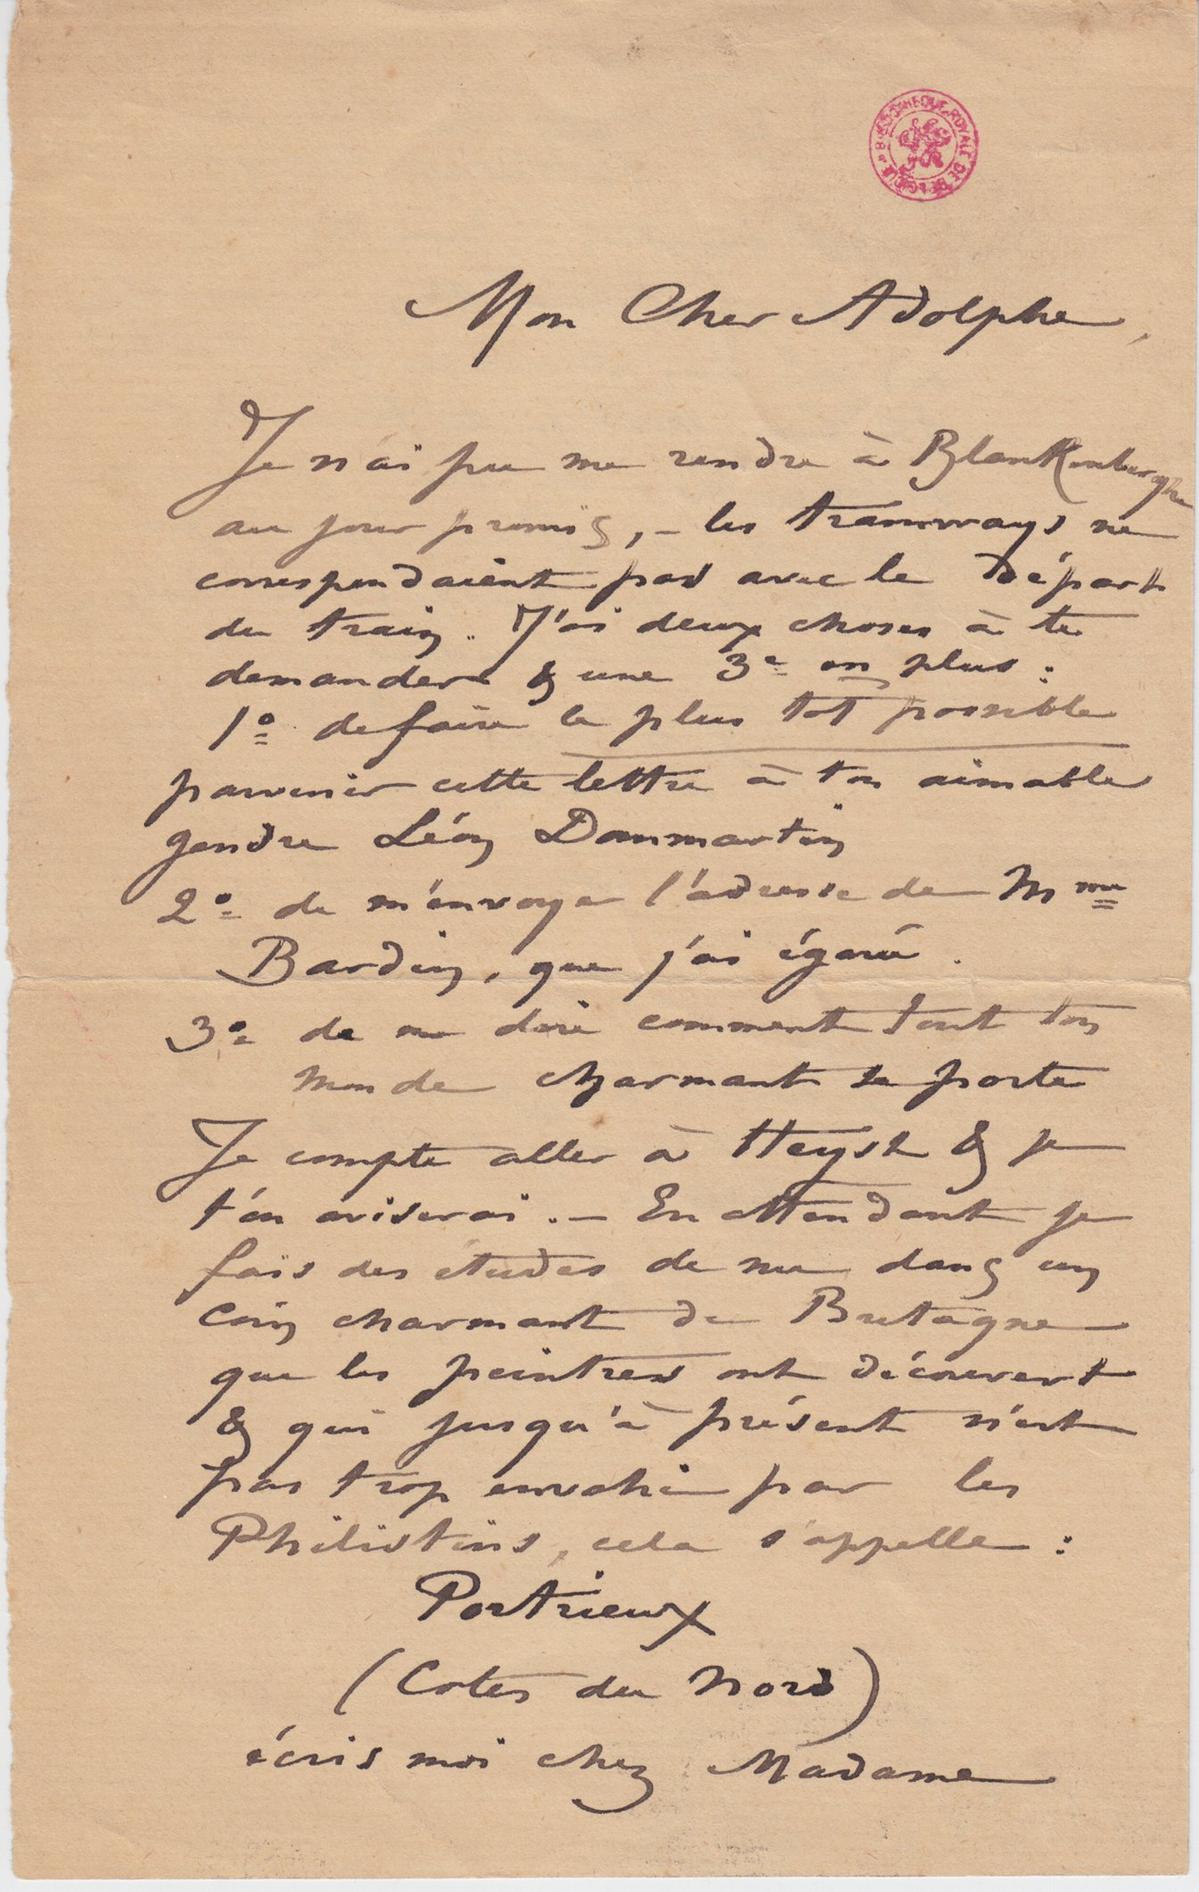 BIBLIOTHEQUE ROYALE DE BELGIQUE
Mon Cher Adolphe,
Je n'ai pu me rendre à Blankenberghe
au jour promis, – les tramways ne
correspondaient pas avec le départ
du train. J'ai deux choses à te
demander & une 3e en plus :
1o de faire le plus tot possible
parvenir cette lettre à ton aimable
gendre Léon Dommartin
2o de m'envoyer l'adresse de Mme
Bardin, que j'ai égaré.
3o de me dire comment tout ton
monde charmant se porte
Je compte aller à Heyst & je
t'en aviserai. – En attendant je
fais des études de nu dans un
coin charmant de Bretagne
que les peintres ont découvert
& qui jusqu'à présent n'est
pas trop envahi par les
Philistins, cela s'appelle :
Portrieux
(Cotes du Nord)
écris moi chez Madame